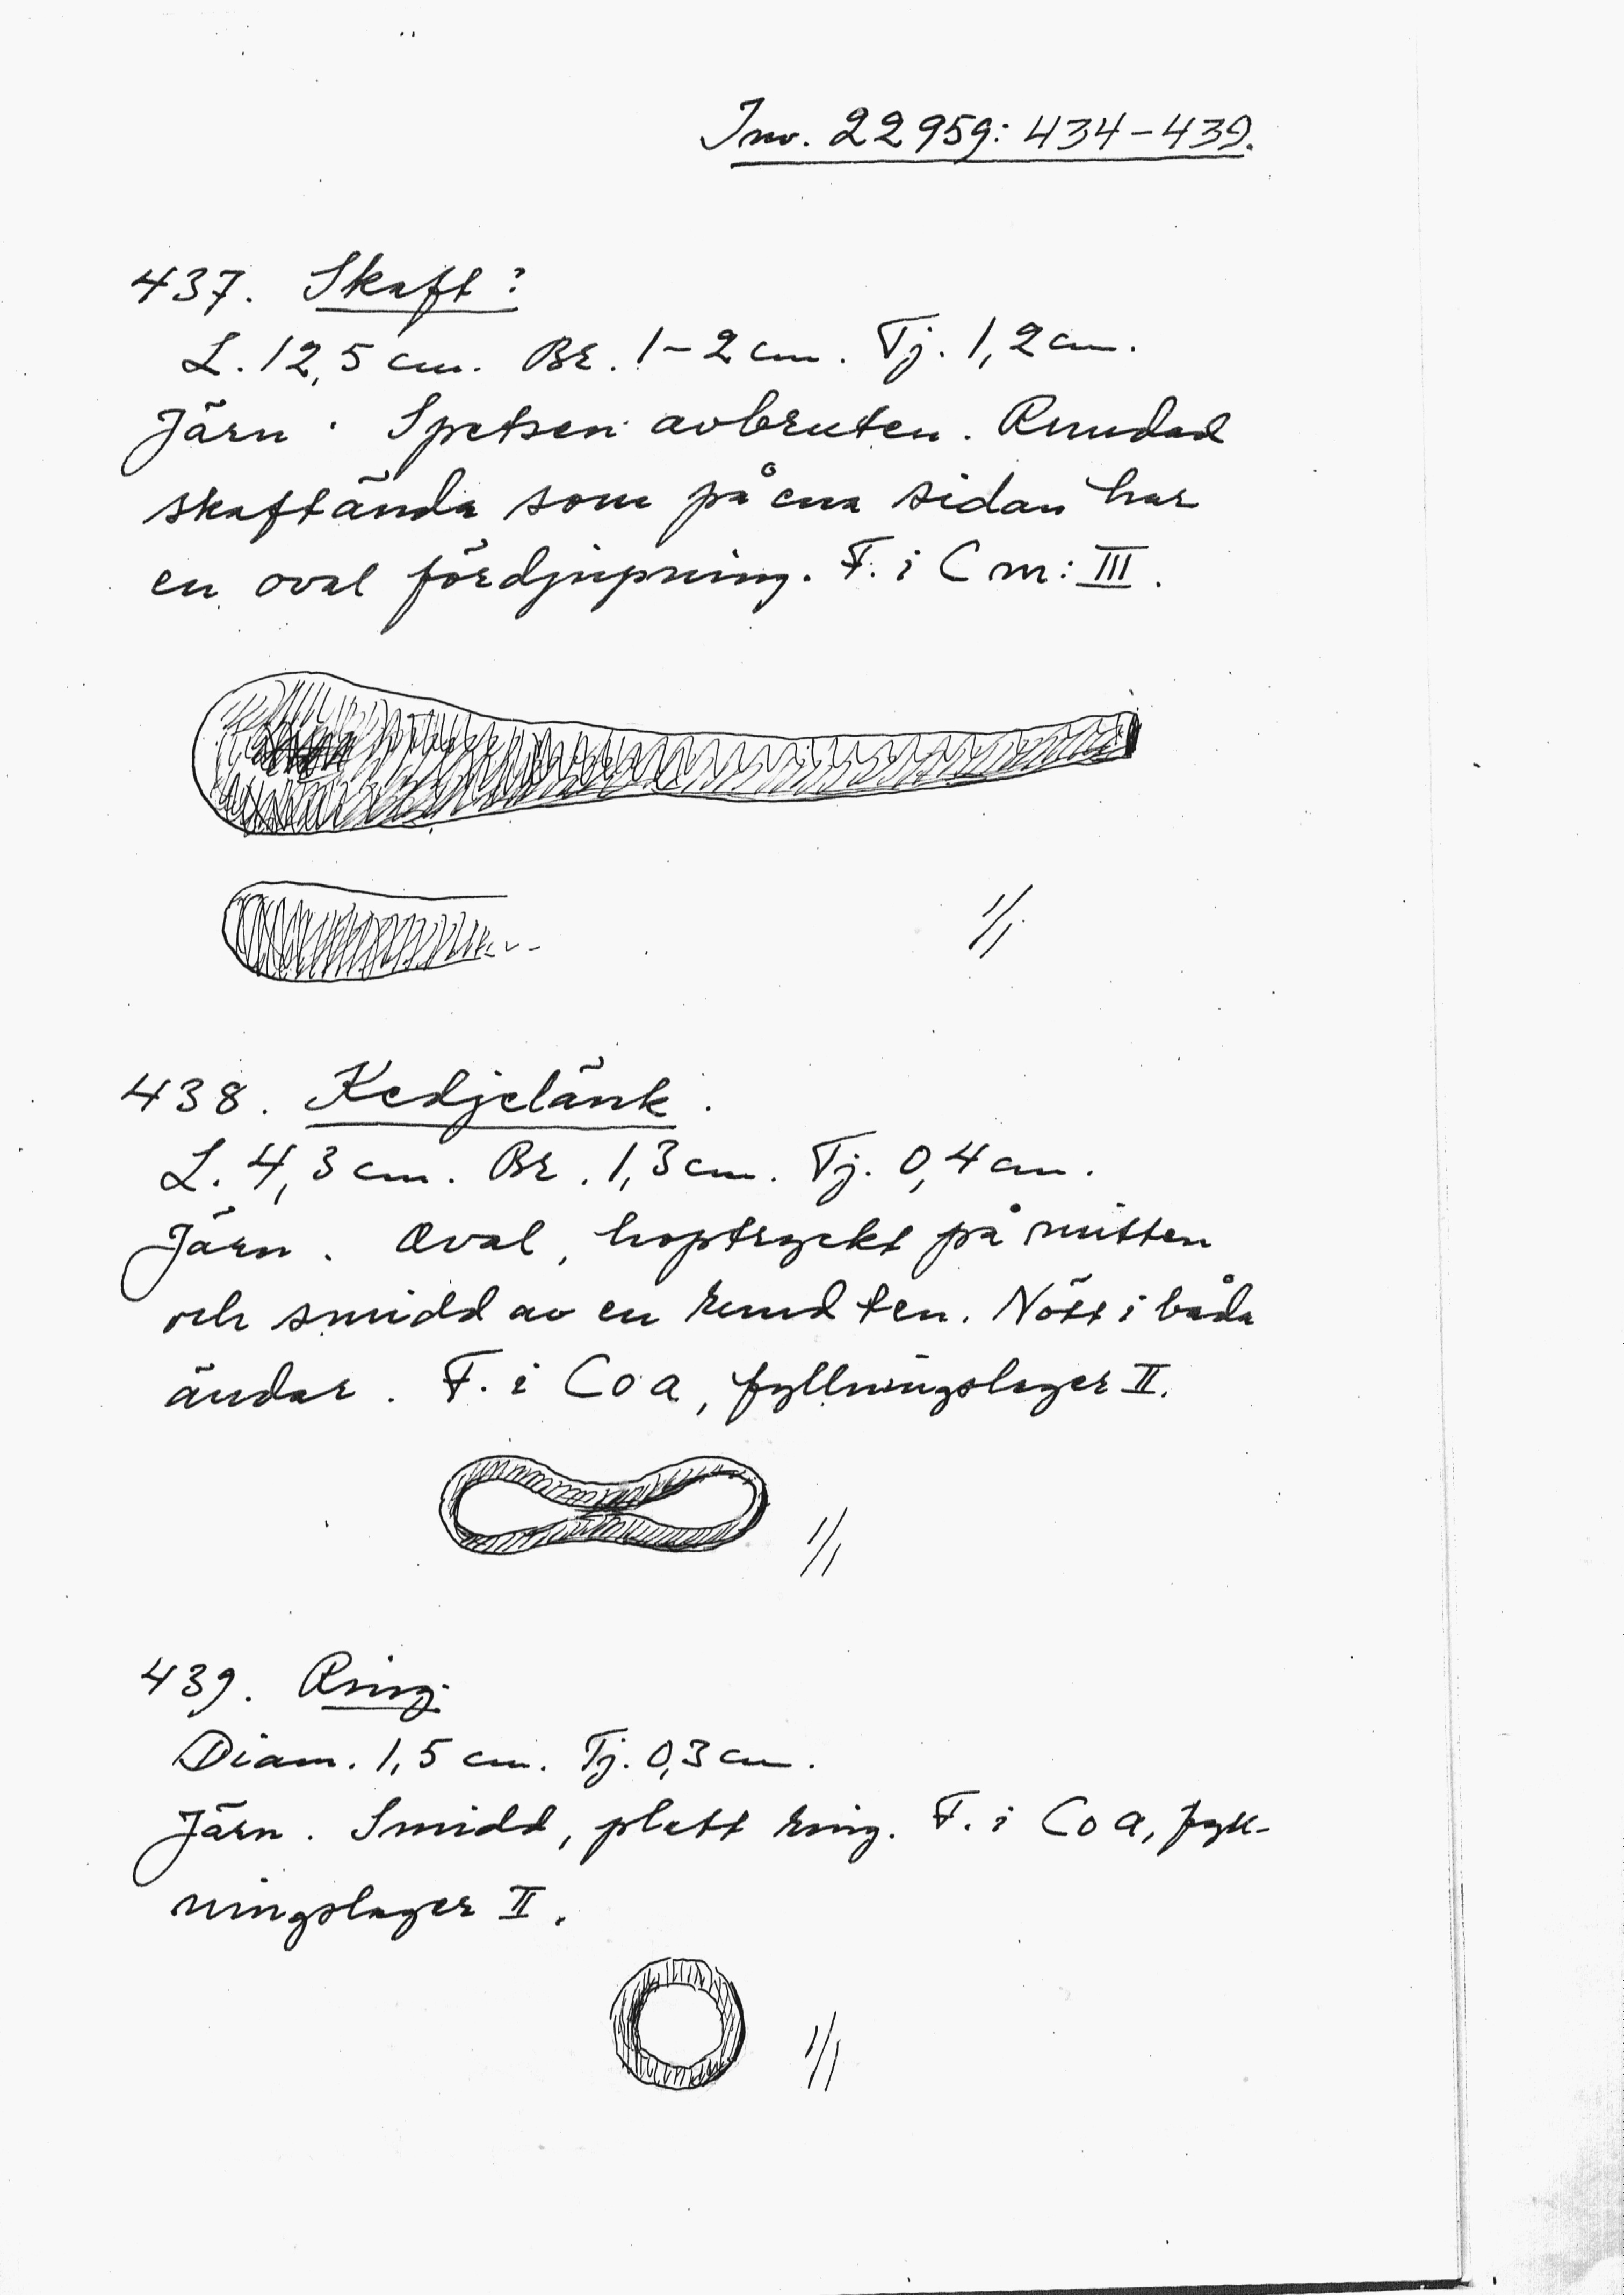 Inv. 22959: 434-439.
437. Skaft?
L. 12,5 cm. Br. 1-2 cm. Tj. 1,2 cm.
Järn. Spetsen avbruten. Rundad
skaftända som på ena sidan har
en oval fördjupning. F. i C m: III.
1/1
438. Kedjelänk.
L. 4,3 cm. Br. 1,3 cm. Tj. 0,4 cm.
Järn. Oval, hoptryckt på mitten
och smidd av en rund ten. Nött i båda
ändar. F. i Co a, fyllningslager II.
1/1
439. Ring.
Diam. 1,5 cm. Tj. 0,3 cm.
Järn. Smidd, platt ring. F. i Co a, fyll-
ningslager II.
1/1